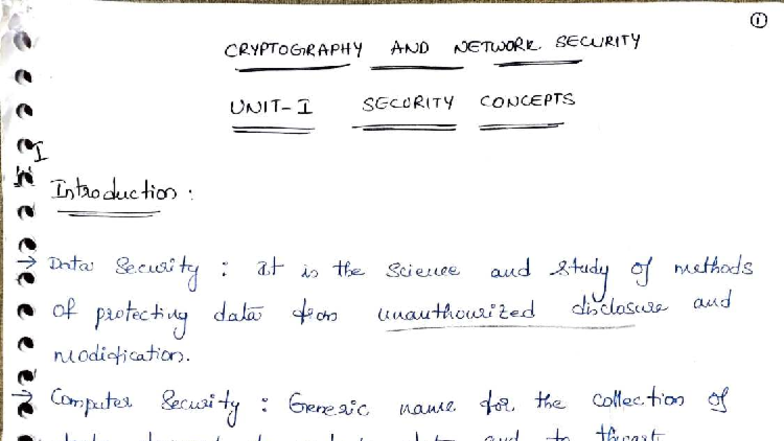 ①
CRYPTOGRAPHY AND NETWORK SECURITY
UNIT-I SECURITY CONCEPTS
I
Introduction :
→ Data Security : It is the science and study of methods
of protecting data from unauthourized disclosure and
modification.
→ Computer Security : Generic name for the collection of
data and to thwart